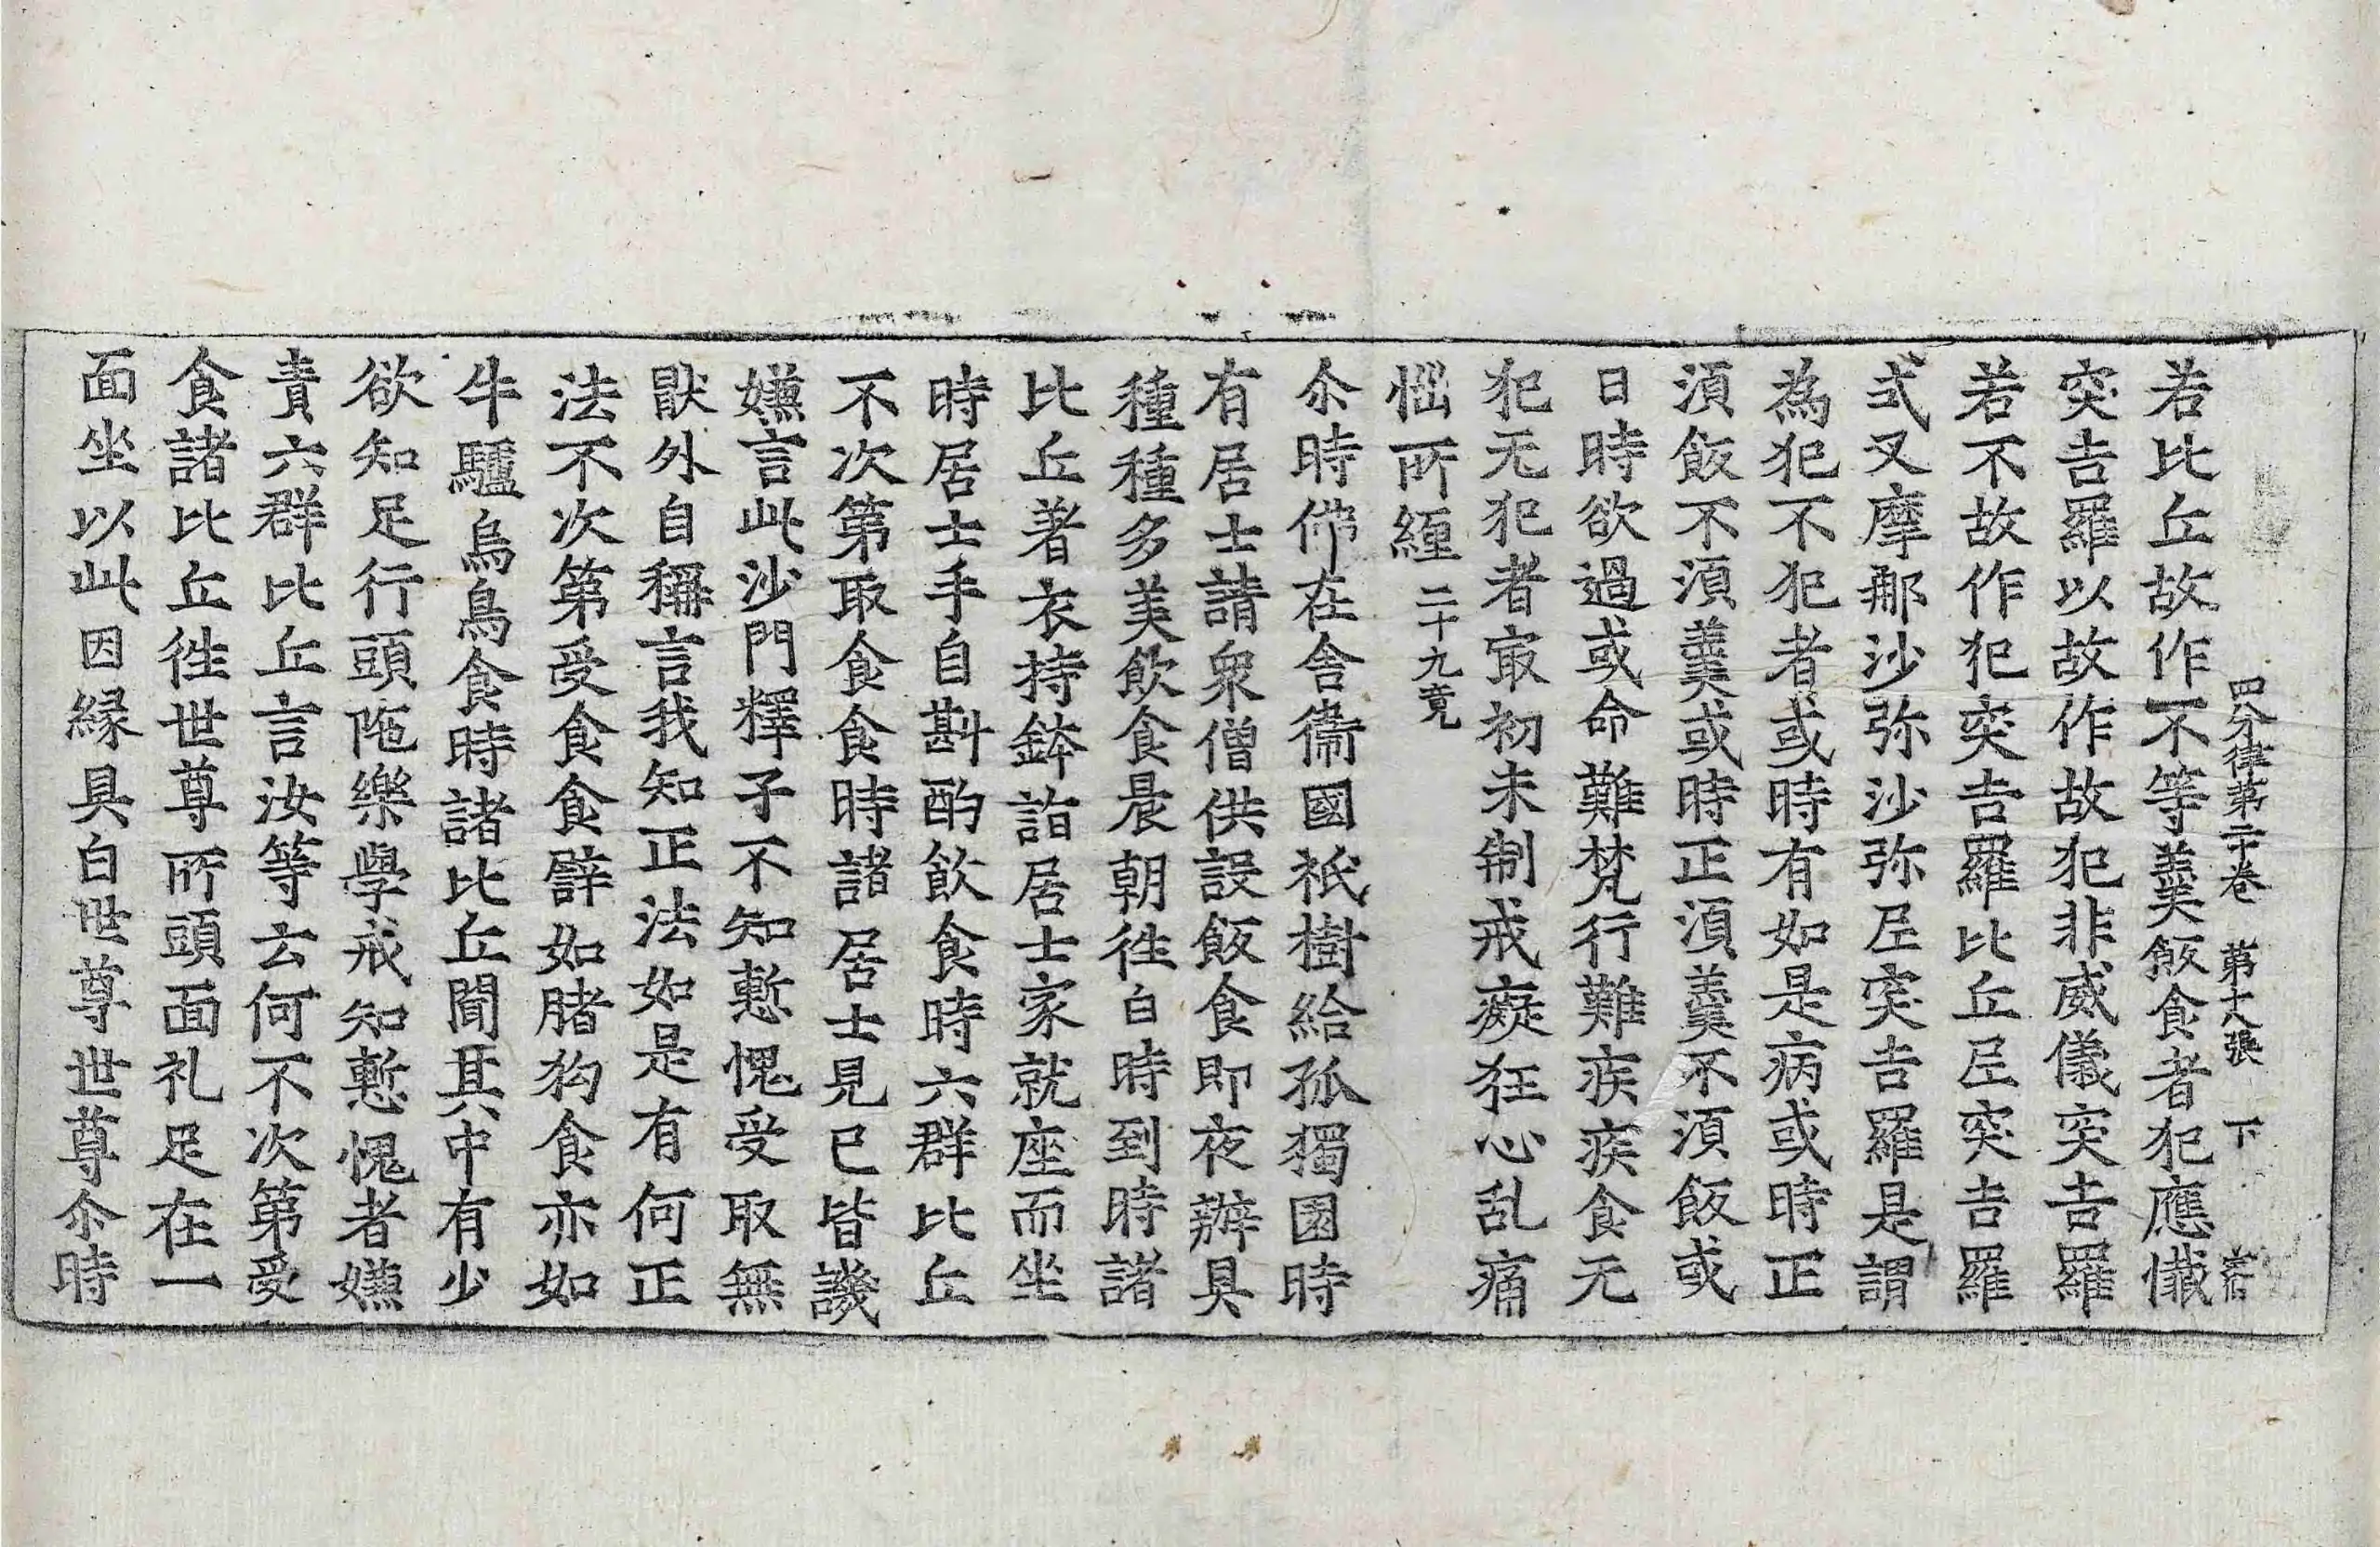 四分律第二十卷　第十八張　下
若比丘故作不等羹飯食者犯應懺
突吉羅以故作故犯非威儀突吉羅
若不故作犯突吉羅比丘尼突吉羅
式叉摩那沙弥沙弥尼突吉羅是謂
為犯不犯者或時有如是病或時正
湏飯不湏羹或時正湏羹不湏飯或
日時欲過或命難梵行難疾疾食无
犯无犯者㝡初未制戒癡狂心乱痛
惱所纏二十九竟
尒時佛在舍衞國祇樹給孤獨園時
有居士請衆僧供設飯食即夜辦具
種種多美飲食晨朝徃白時到時諸
比丘著衣持鉢詣居士家就座而坐
時居士手自斟酌飲食時六群比丘
不次第取食食時諸居士見已皆譏
嫌言此沙門釋子不知慙愧受取無
猒外自稱言我知正法如是有何正
法不次第受食食譬如腤狗食亦如
牛驢烏鳥食時諸比丘聞其中有少
欲知足行頭陁樂學戒知慙愧者嫌
責六群比丘言汝等云何不次第受
食諸比丘徃世尊所頭面礼足在一
面坐以此因縁具白世尊世尊尒時